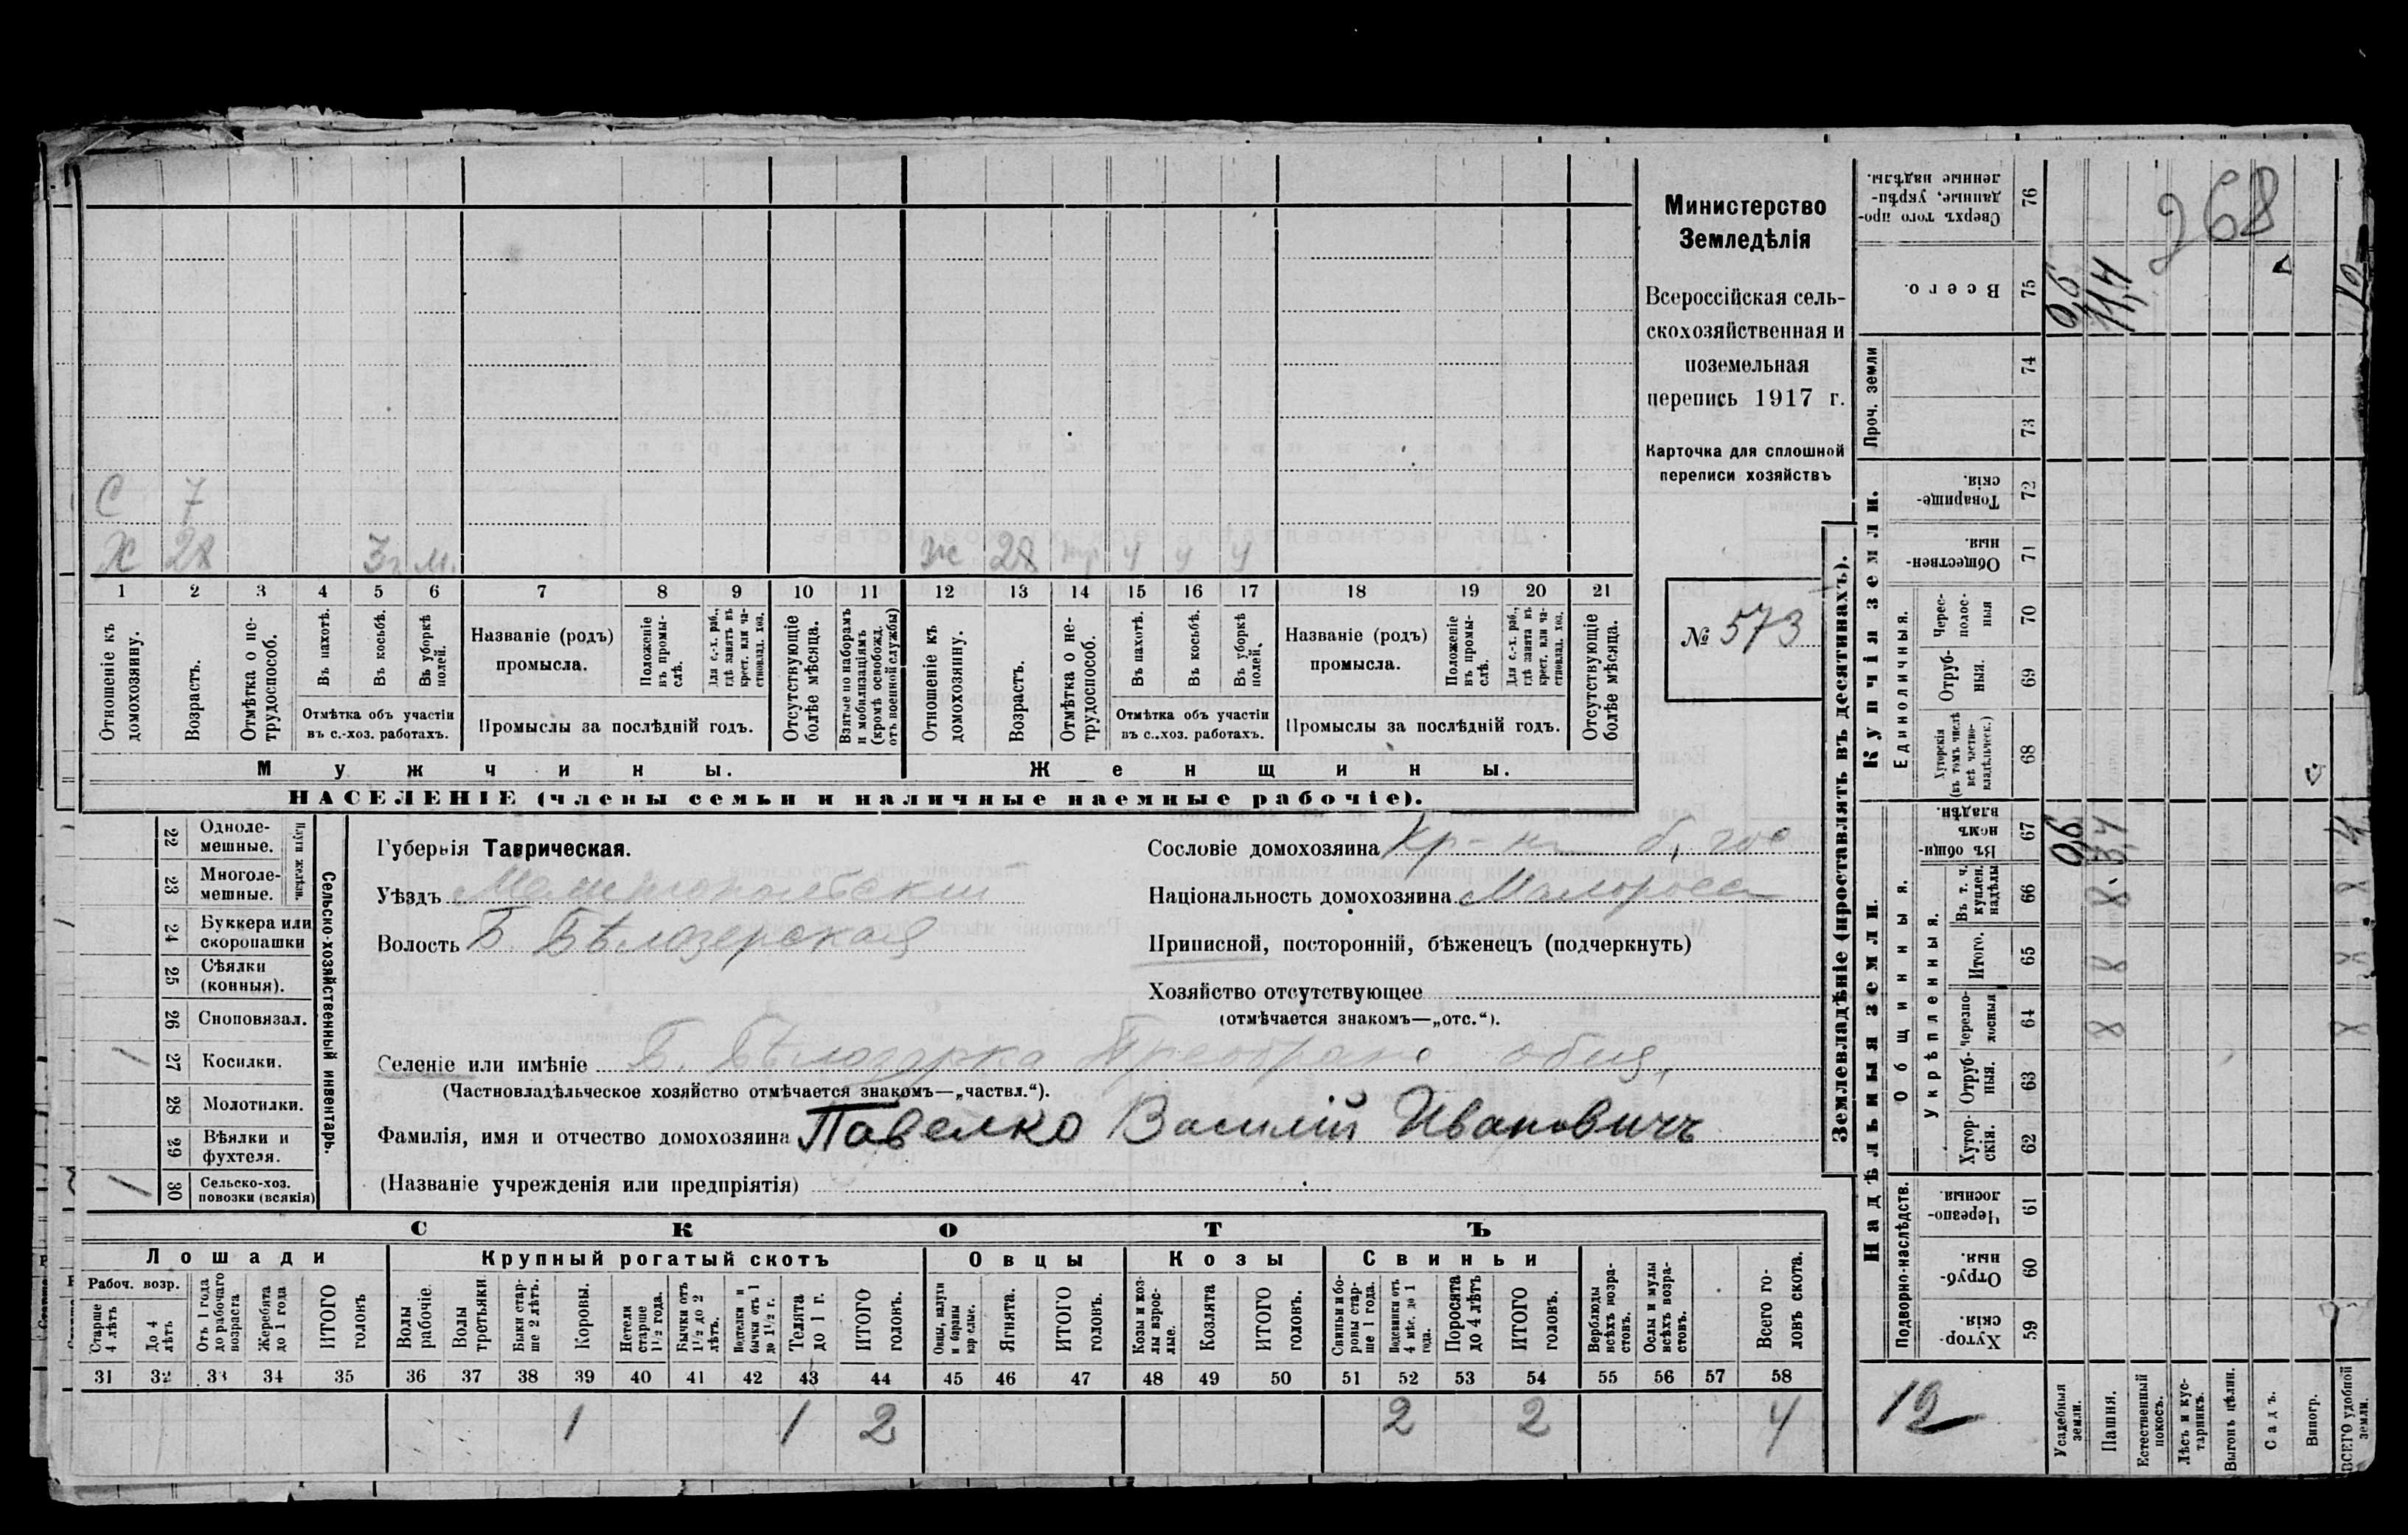 Министерство
Земледѣлія
Всероссійская сель-
скохозяйственная и
поземельная
перепись 1917 г.
Карточка для сплошной
переписи хозяйствъ
№ 573
268
С 7
Х 28 3 г м.
ж 28 ч ч ч
1 2 3 4 5 6 7 8 9 10 11 12 13 14 15 16 17 18 19 20 21
Отношеніе къ домохозяину.
Возрастъ.
Отмѣтка о не-трудоспособ.
Въ пахотѣ.
Въ косьбѣ.
Въ уборкѣ полей.
Отмѣтка объ участіи
въ с.-хоз. работахъ.
Названіе (родъ)
промысла.
Положеніе въ промы-слѣ.
Для с.-х. раб., гдѣ занятъ въ крест. или ча-стновлад. хоз.
Промыслы за послѣдній годъ.
Отсутствующіе болѣе мѣсяца.
Взятые по наборамъ и мобилизаціямъ (кромѣ освобожд. отъ военной службы)
Отношеніе къ домохозяину.
Возрастъ.
Отмѣтка о не-трудоспособ.
Въ пахотѣ.
Въ косьбѣ.
Въ уборкѣ полей.
Отмѣтка объ участіи
въ с..хоз. работахъ.
Названіе (родъ)
промысла.
Положеніе въ промы-слѣ.
Для с.-х. раб., гдѣ занята въ крест. или ча-стновлад. хоз.
Промыслы за послѣдній годъ.
Отсутствующіе болѣе мѣсяца.
Мужчины.
Женщины.
НАСЕЛЕНІЕ (члены семьи и наличные наемные рабочіе).
22 Одноле-мешные.
23 Многоле-мешные.
Плуги желѣзн.
24 Буккера или скоропашки
25 Сѣялки (конныя).
26 Сноповязал.
/ 27 Косилки.
28 Молотилки.
29 Вѣялки и фухтеля.
/ 30 Сельско-хоз. повозки (всякія)
Сельско-хозяйственный инвентарь.
Губернія Таврическая.
Уѣздъ Мелитопольскій
Волость Б. Бѣлозерская
Сословіе домохозяина Кр-нъ б. гос
Національность домохозяина Малороссъ
Приписной, посторонній, бѣженецъ (подчеркнуть)
Хозяйство отсутствующее
(отмѣчается знакомъ—„отс.“).
Селеніе или имѣніе Б. Бѣлозерка Преображ общ,
(Частновладѣльческое хозяйство отмѣчается знакомъ—„частвл.“).
Фамилія, имя и отчество домохозяина Павелко Василій Ивановичъ
(Названіе учрежденія или предпріятія)
СКОТЪ
Лошади Крупный рогатый скотъ Овцы Козы Свиньи
Рабоч. возр.
Старше 4 лѣтъ
До 4 лѣтъ
Отъ 1 года до рабочаго возраста
Жеребята до 1 года
ИТОГО головъ
Волы рабочіе.
Волы третьяки.
Быки стар-ше 2 лѣтъ.
Коровы.
Нетели старше 1½ года.
Бычки отъ 1½ до 2 лѣтъ.
Подтелки и бычки отъ 1 до 1½ г.
Телята до 1 г.
ИТОГО головъ.
Овцы, валухи и бараны взрослые.
Ягнята.
ИТОГО головъ.
Козы и коз-лы взрос-лые.
Козлята
ИТОГО головъ.
Свиньи и бо-ровы стар-ше 1 года.
Подсвинки отъ 4 мѣс. до 1 года.
Поросята до 4 лѣтъ
ИТОГО головъ.
Верблюды всѣхъ возра-стовъ.
Ослы и мулы всѣхъ возра-стовъ.
Всего го-ловъ скота.
31 32 33 34 35 36 37 38 39 40 41 42 43 44 45 46 47 48 49 50 51 52 53 54 55 56 57 58
1 1 2 2 2 4
Землевладѣніе (проставлять въ десятинахъ).
Купчія земли.
Надѣльныя земли.
Сверхъ того про-данные, укрѣп-ленные надѣлы. 76
Всего. 75 0,6 11,4 12
Проч. земли 74 73
Товарище-скія. 72
Обществен-ныя. 71
Единоличныя.
Черес-полос-ныя 70
Отруб-ныя. 69
Хуторскія (въ томъ числѣ всѣ частно-владѣльческ.) 68
Общинныя.
Въ общи-номъ владѣн. 67 0,6 3,4 4
Укрѣпленныя.
Въ т. ч. куплен. надѣлы 66 8 8
Итого. 65 8 8
Черезпо-лосныя 64 8 8
Отруб-ныя. 63
Хутор-скія. 62
Подворно-наслѣдств.
Черезпо-лосныя. 61
Отруб-ныя. 60
Хутор-скія. 59
12
Усадебныя земли.
Пашня.
Естественный покосъ.
Лѣсъ и кус-тарникъ.
Выгонъ цѣлин.
Садъ.
Виногр.
ВСЕГО удобной земли.